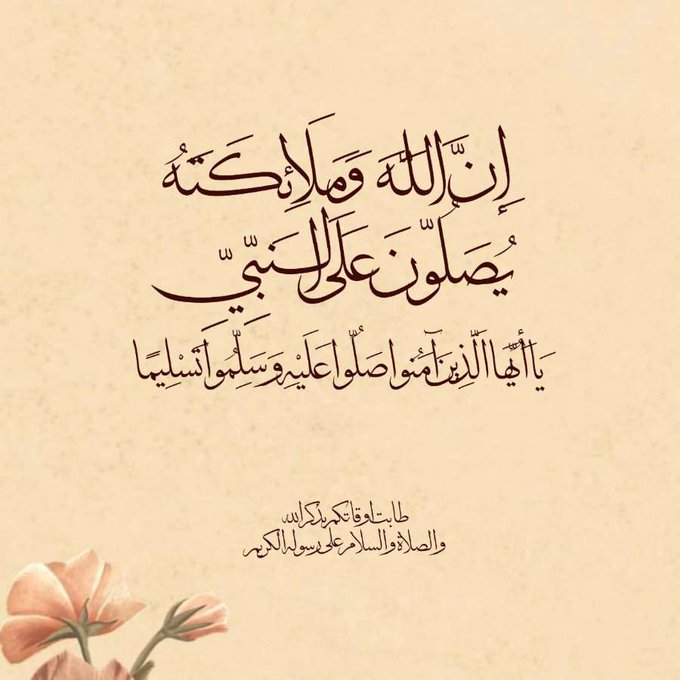 إِنَّ اللَّهَ وَمَلَائِكَتَهُ
يُصَلُّونَ عَلَى النَّبِيِّ
يَا أَيُّهَا الَّذِينَ آمَنُوا صَلُّوا عَلَيْهِ وَسَلِّمُوا تَسْلِيمًا
طابت اوقاتكم بذكر الله
والصلاة والسلام على رسوله الكريم